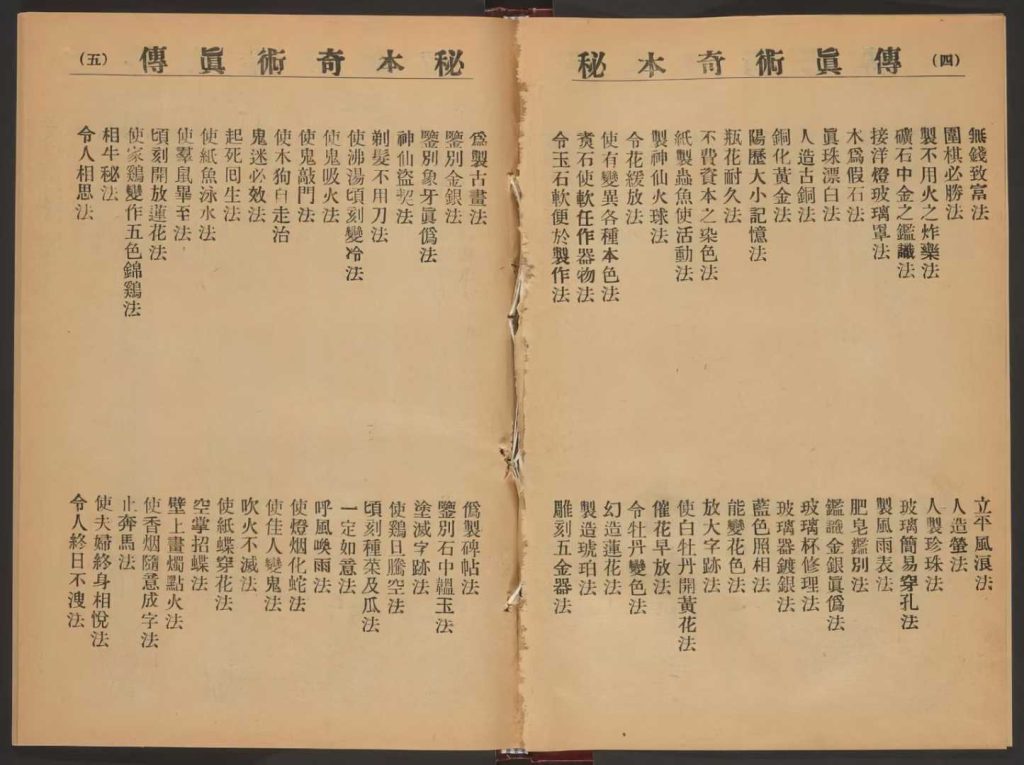 秘本奇術眞傳 (四)
無錢致富法
圍棋必勝法
製不用火之炸藥法
礦石中金之鑑識法
接洋燈玻璃罩法
木爲假石法
眞珠漂白法
人造古銅法
銅化黃金法
陽歷大小記憶法
瓶花耐久法
不費資本之染色法
紙製蟲魚使活動法
製神仙火球法
令花緩放法
使有變異各種本色法
賁石使軟任作器物法
令玉石軟便於製作法
立平風浪法
人造螢法
人製珍珠法
玻璃簡易穿孔法
製風雨表法
肥皂鑑別法
鑑識金銀眞僞法
玻璃杯修理法
玻璃器鍍銀法
藍色照相法
能變花色法
放大字跡法
使白牡丹開黃花法
催花早放法
令牡丹變色法
幻造蓮花法
製造琥珀法
雕刻五金器法
秘本奇術眞傳 (五)
僞製古畫法
鑒別金銀法
鑒別象牙眞僞法
神仙盜契法
剃髮不用刀法
使沸湯頃刻變冷法
使鬼吸火法
使鬼敲門法
使木狗自走治
鬼迷必效法
起死囘生法
使紙魚泳水法
使羣鼠畢至法
頃刻開放蓮花法
使家鷄變作五色錦鷄法
相牛秘法
令人相思法
僞製碑帖法
鑒別石中韞玉法
塗滅字跡法
使鷄旦騰空法
頃刻種菜及瓜法
一定如意法
呼風喚雨法
使燈烟化蛇法
使佳人變鬼法
吹火不滅法
使紙蝶穿花法
空掌招蝶法
壁上畫燭點火法
使香烟隨意成字法
止奔馬法
使夫婦終身相悅法
令人終日不溲法